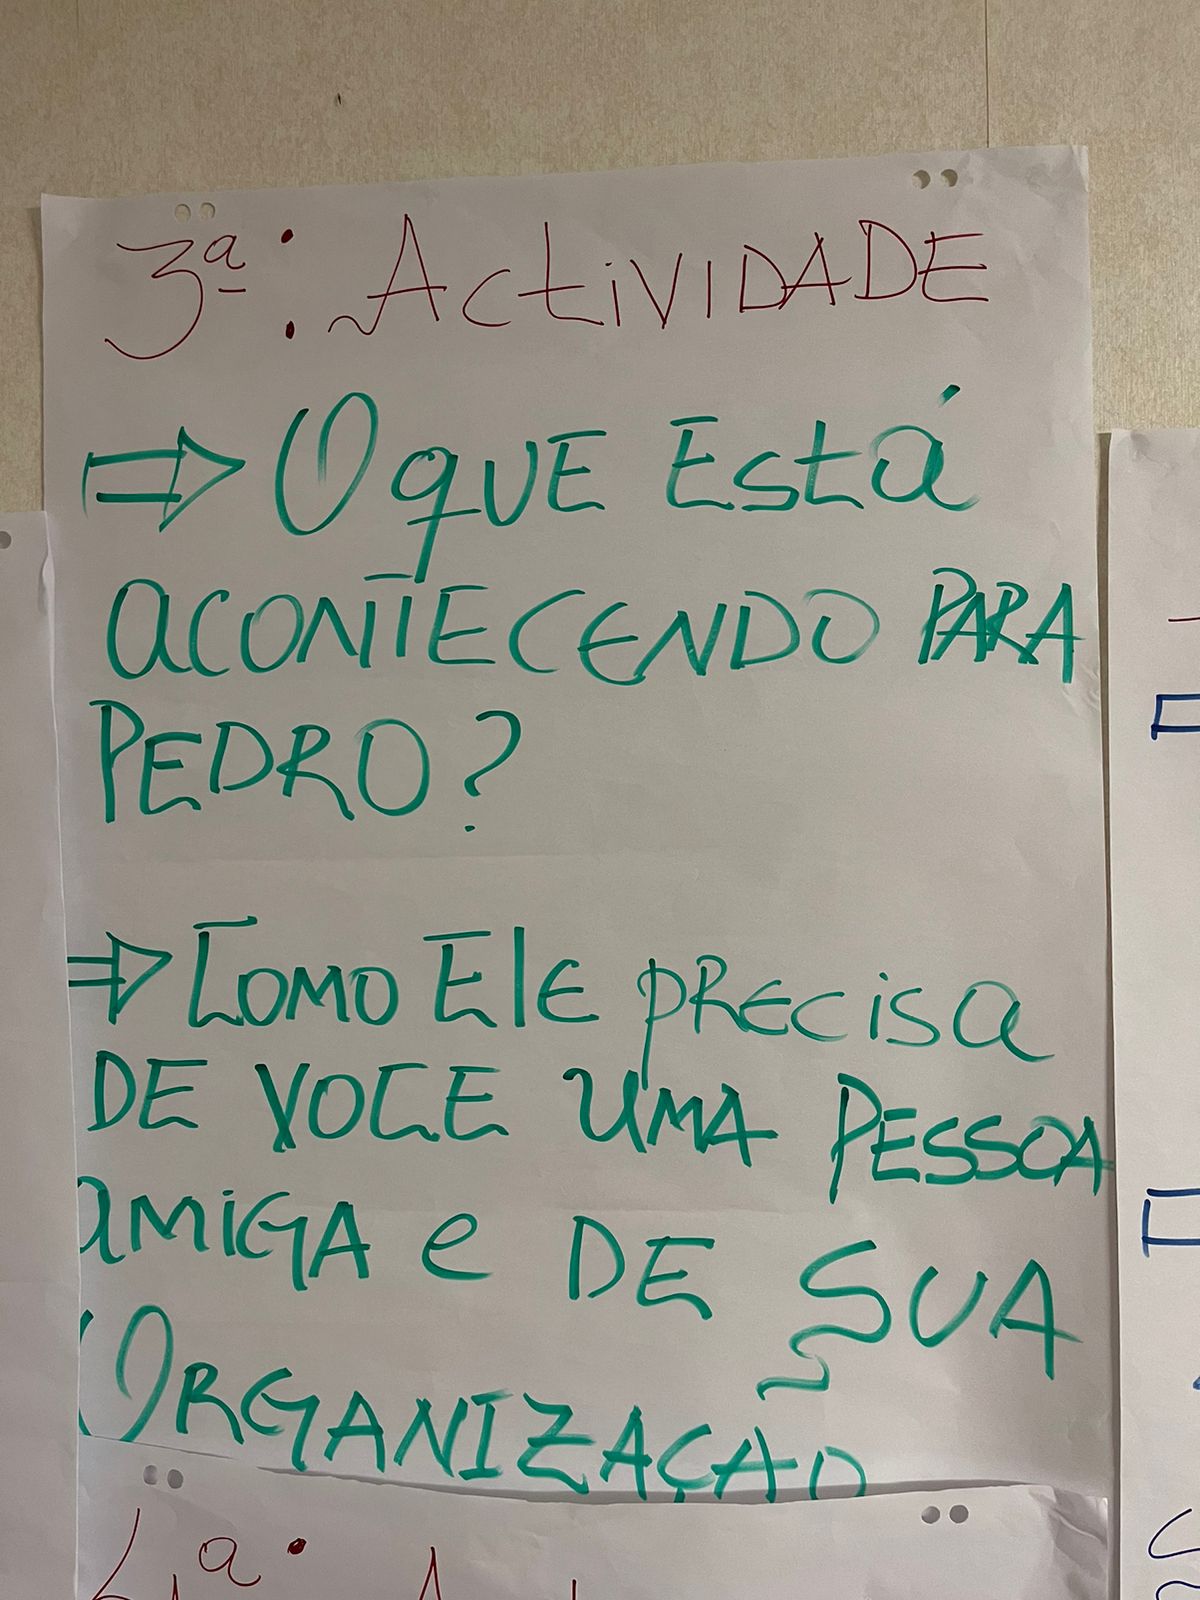 3ª: ActiVIDADE
⇒ O qUE Está
aCONTECENDO PARA
PEDRO?
⇒ COMO ElE pRECisa
DE VOCE UMA PESSOA
aMiGA e DE SUA
ORGANIZAÇAO
4ª: